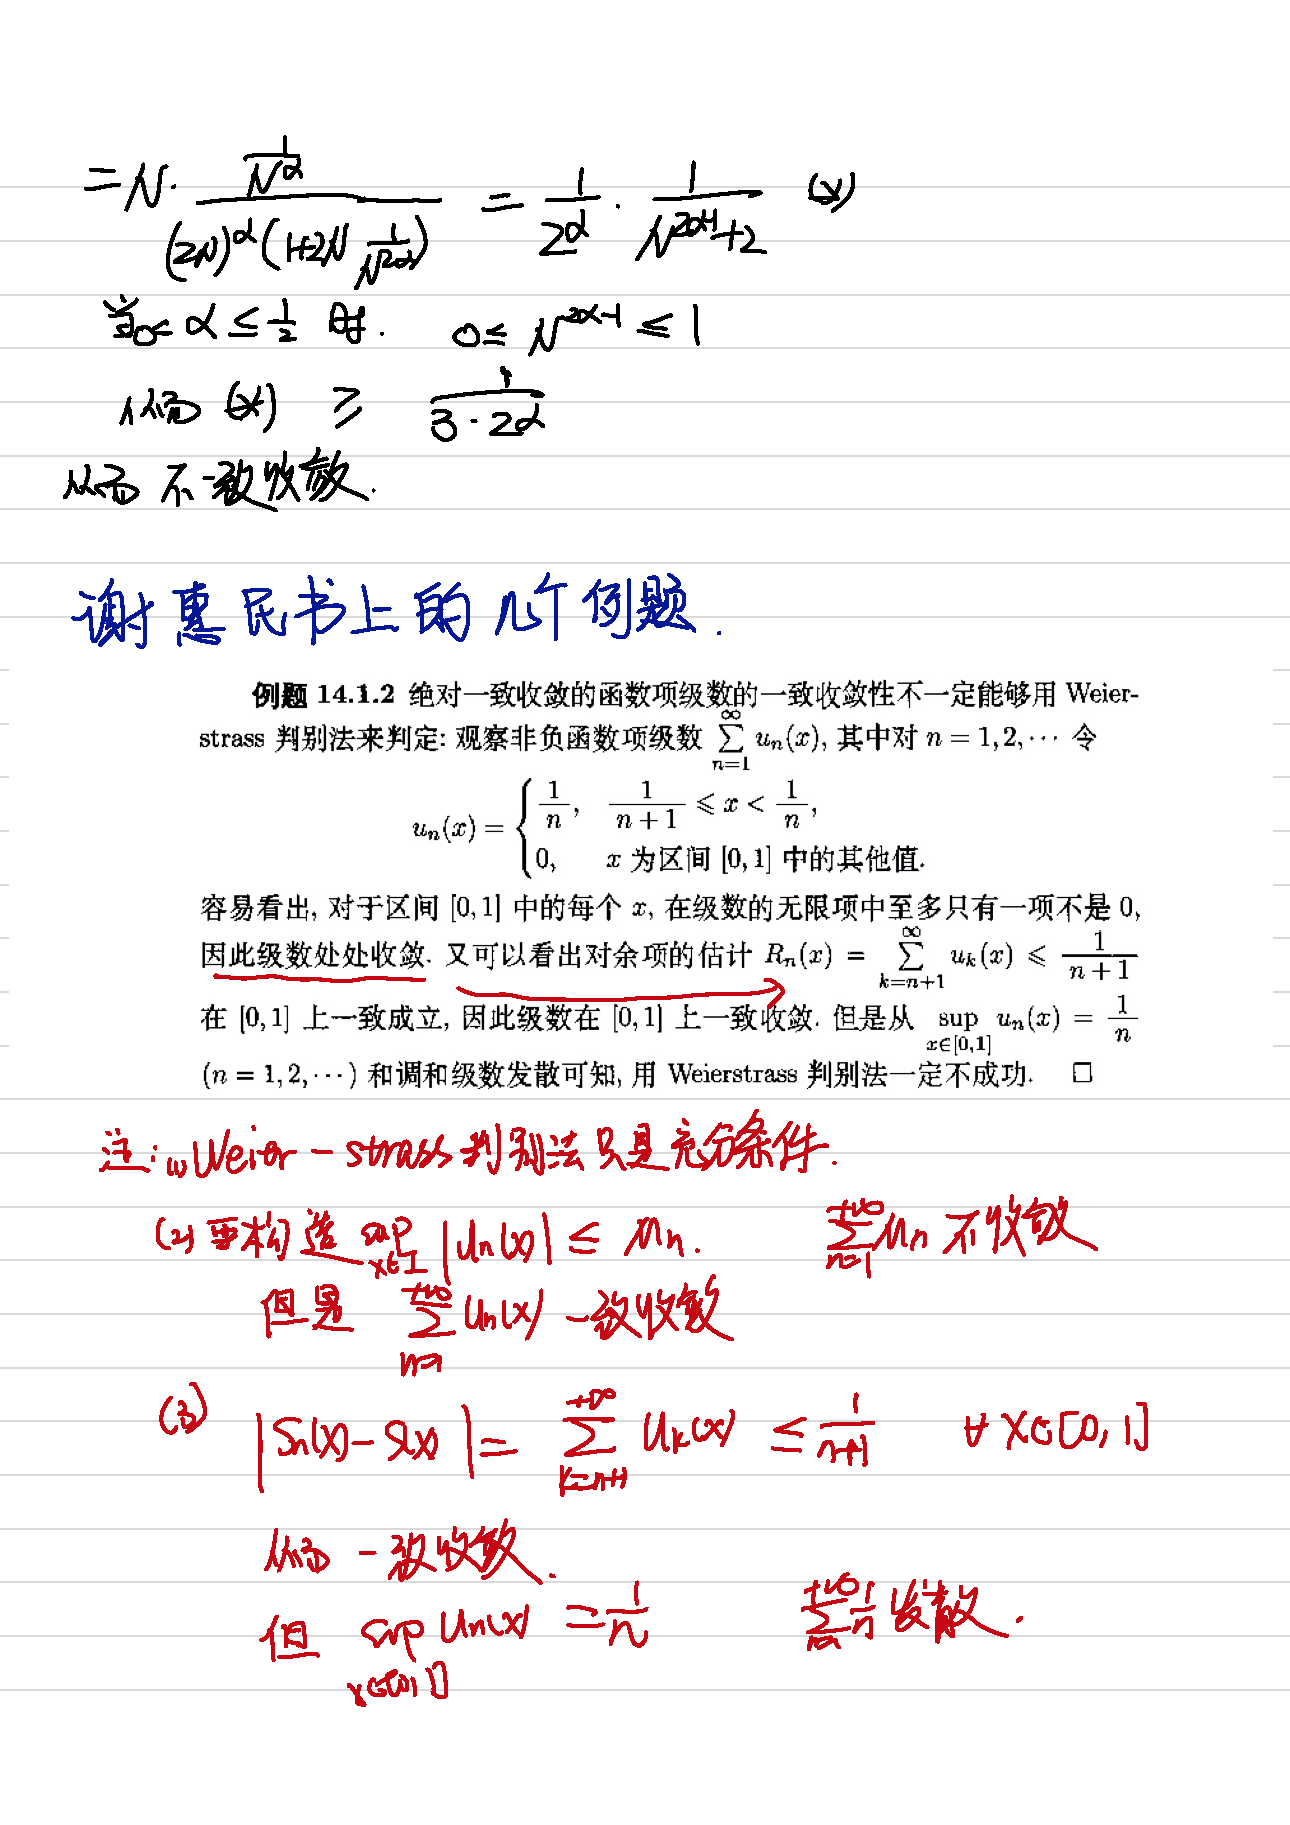 = N · \frac{\frac{1}{N^α}}{(2N)^α(1+2N \frac{1}{N^{2α}})} = \frac{1}{2^α} · \frac{1}{N^{2α-1}+2} (*)
当0< α ≤ \frac{1}{2} 时. 0 ≤ N^{2α-1} ≤ 1
从而 (*) ≥ \frac{1}{3·2^α}
从而 不一致收敛.
谢惠民书上的几个例题.
例题 14.1.2 绝对一致收敛的函数项级数的一致收敛性不一定能够用 Weier-
strass 判别法来判定: 观察非负函数项级数 \sum_{n=1}^{∞} u_n(x), 其中对 n = 1, 2, ⋯ 令
u_n(x) = { \frac{1}{n}, \frac{1}{n+1} ⩽ x < \frac{1}{n},
0, x 为区间 [0, 1] 中的其他值.
容易看出, 对于区间 [0, 1] 中的每个 x, 在级数的无限项中至多只有一项不是 0,
因此级数处处收敛. 又可以看出对余项的估计 R_n(x) = \sum_{k=n+1}^{∞} u_k(x) ⩽ \frac{1}{n+1}
在 [0, 1] 上一致成立, 因此级数在 [0, 1] 上一致收敛. 但是从 \sup_{x∈[0,1]} u_n(x) = \frac{1}{n}
(n = 1, 2, ⋯) 和调和级数发散可知, 用 Weierstrass 判别法一定不成功. □
注: (1) Weier-strass判别法只是充分条件.
(2) 要构造 \sup_{x∈I} |u_n(x)| ≤ M_n. \sum_{n=1}^{+∞} M_n 不收敛
但是 \sum_{n=1}^{+∞} u_n(x) 一致收敛
(3) |S_n(x) - S(x)| = \sum_{k=n+1}^{+∞} u_k(x) ≤ \frac{1}{n+1} ∀ x∈[0,1]
从而 一致收敛.
但 \sup_{x∈[0,1]} u_n(x) = \frac{1}{n} \sum_{n=1}^{+∞} \frac{1}{n} 发散.